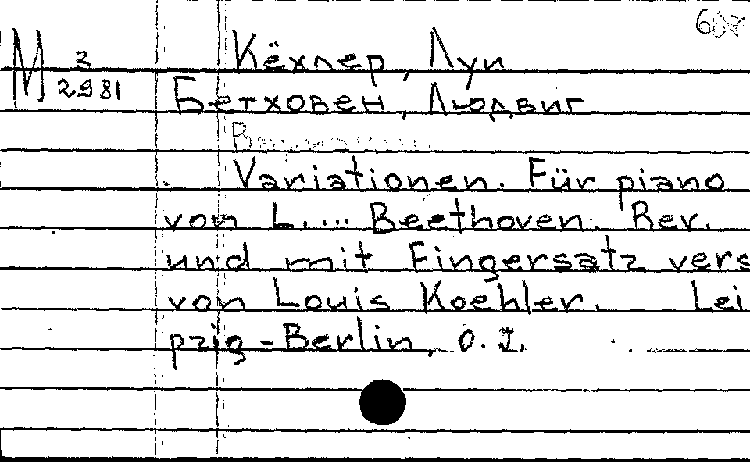 М 3
2981
Кёхлер, Луи
Бетховен, Людвиг
Variationen. Für piano
von L.... Beethoven. Rev.
und mit Fingersatz vers
von Louis Koehler. Lei
pzig-Berlin, o. J.